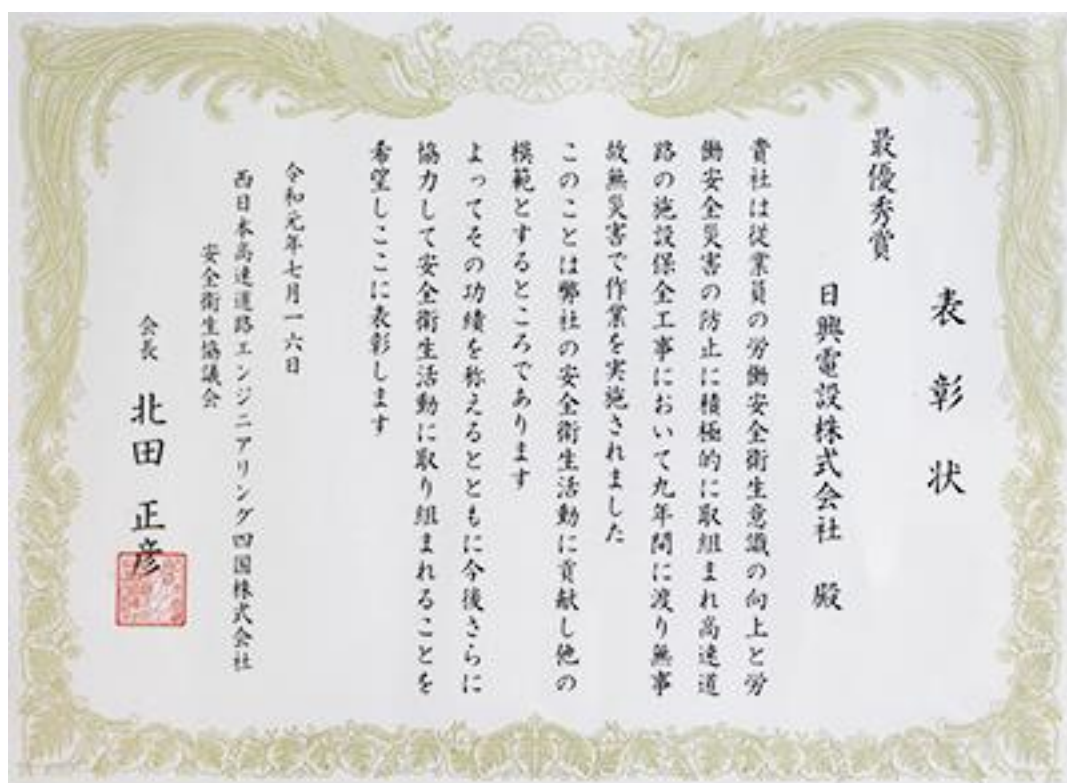 表彰状
最優秀賞
日興電設株式会社 殿
貴社は従業員の労働安全衛生意識の向上と労
働安全災害の防止に積極的に取組まれ高速道
路の施設保全工事において九年間に渡り無事
故無災害で作業を実施されました
このことは弊社の安全衛生活動に貢献し他の
模範とするところであります
よってその功績を称えるとともに今後さらに
協力して安全衛生活動に取り組まれることを
希望しここに表彰します
令和元年七月一六日
西日本高速道路エンジニアリング四国株式会社
安全衛生協議会
会長 北田 正彦